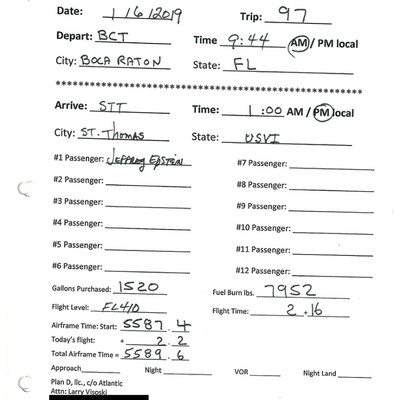 Date: 1/6/2019 Trip: 97
Depart: BCT Time 9:44 AM / PM local
City: BOCA RATON State: FL
Arrive: STT Time: 1:00 AM / PM local
City: ST. Thomas State: USVI
#1 Passenger: Jeffrey Epstein #7 Passenger:
#2 Passenger: #8 Passenger:
#3 Passenger: #9 Passenger:
#4 Passenger: #10 Passenger:
#5 Passenger: #11 Passenger:
#6 Passenger: #12 Passenger:
Gallons Purchased: 1520 Fuel Burn lbs. 7952
Flight Level: FL410 Flight Time: 2.16
Airframe Time: Start: 5587.4
Today's flight: + 2.2
Total Airframe Time = 5589.6
Approach Night VOR Night Land
Plan D, llc., c/o Atlantic
Attn: Larry Visoski